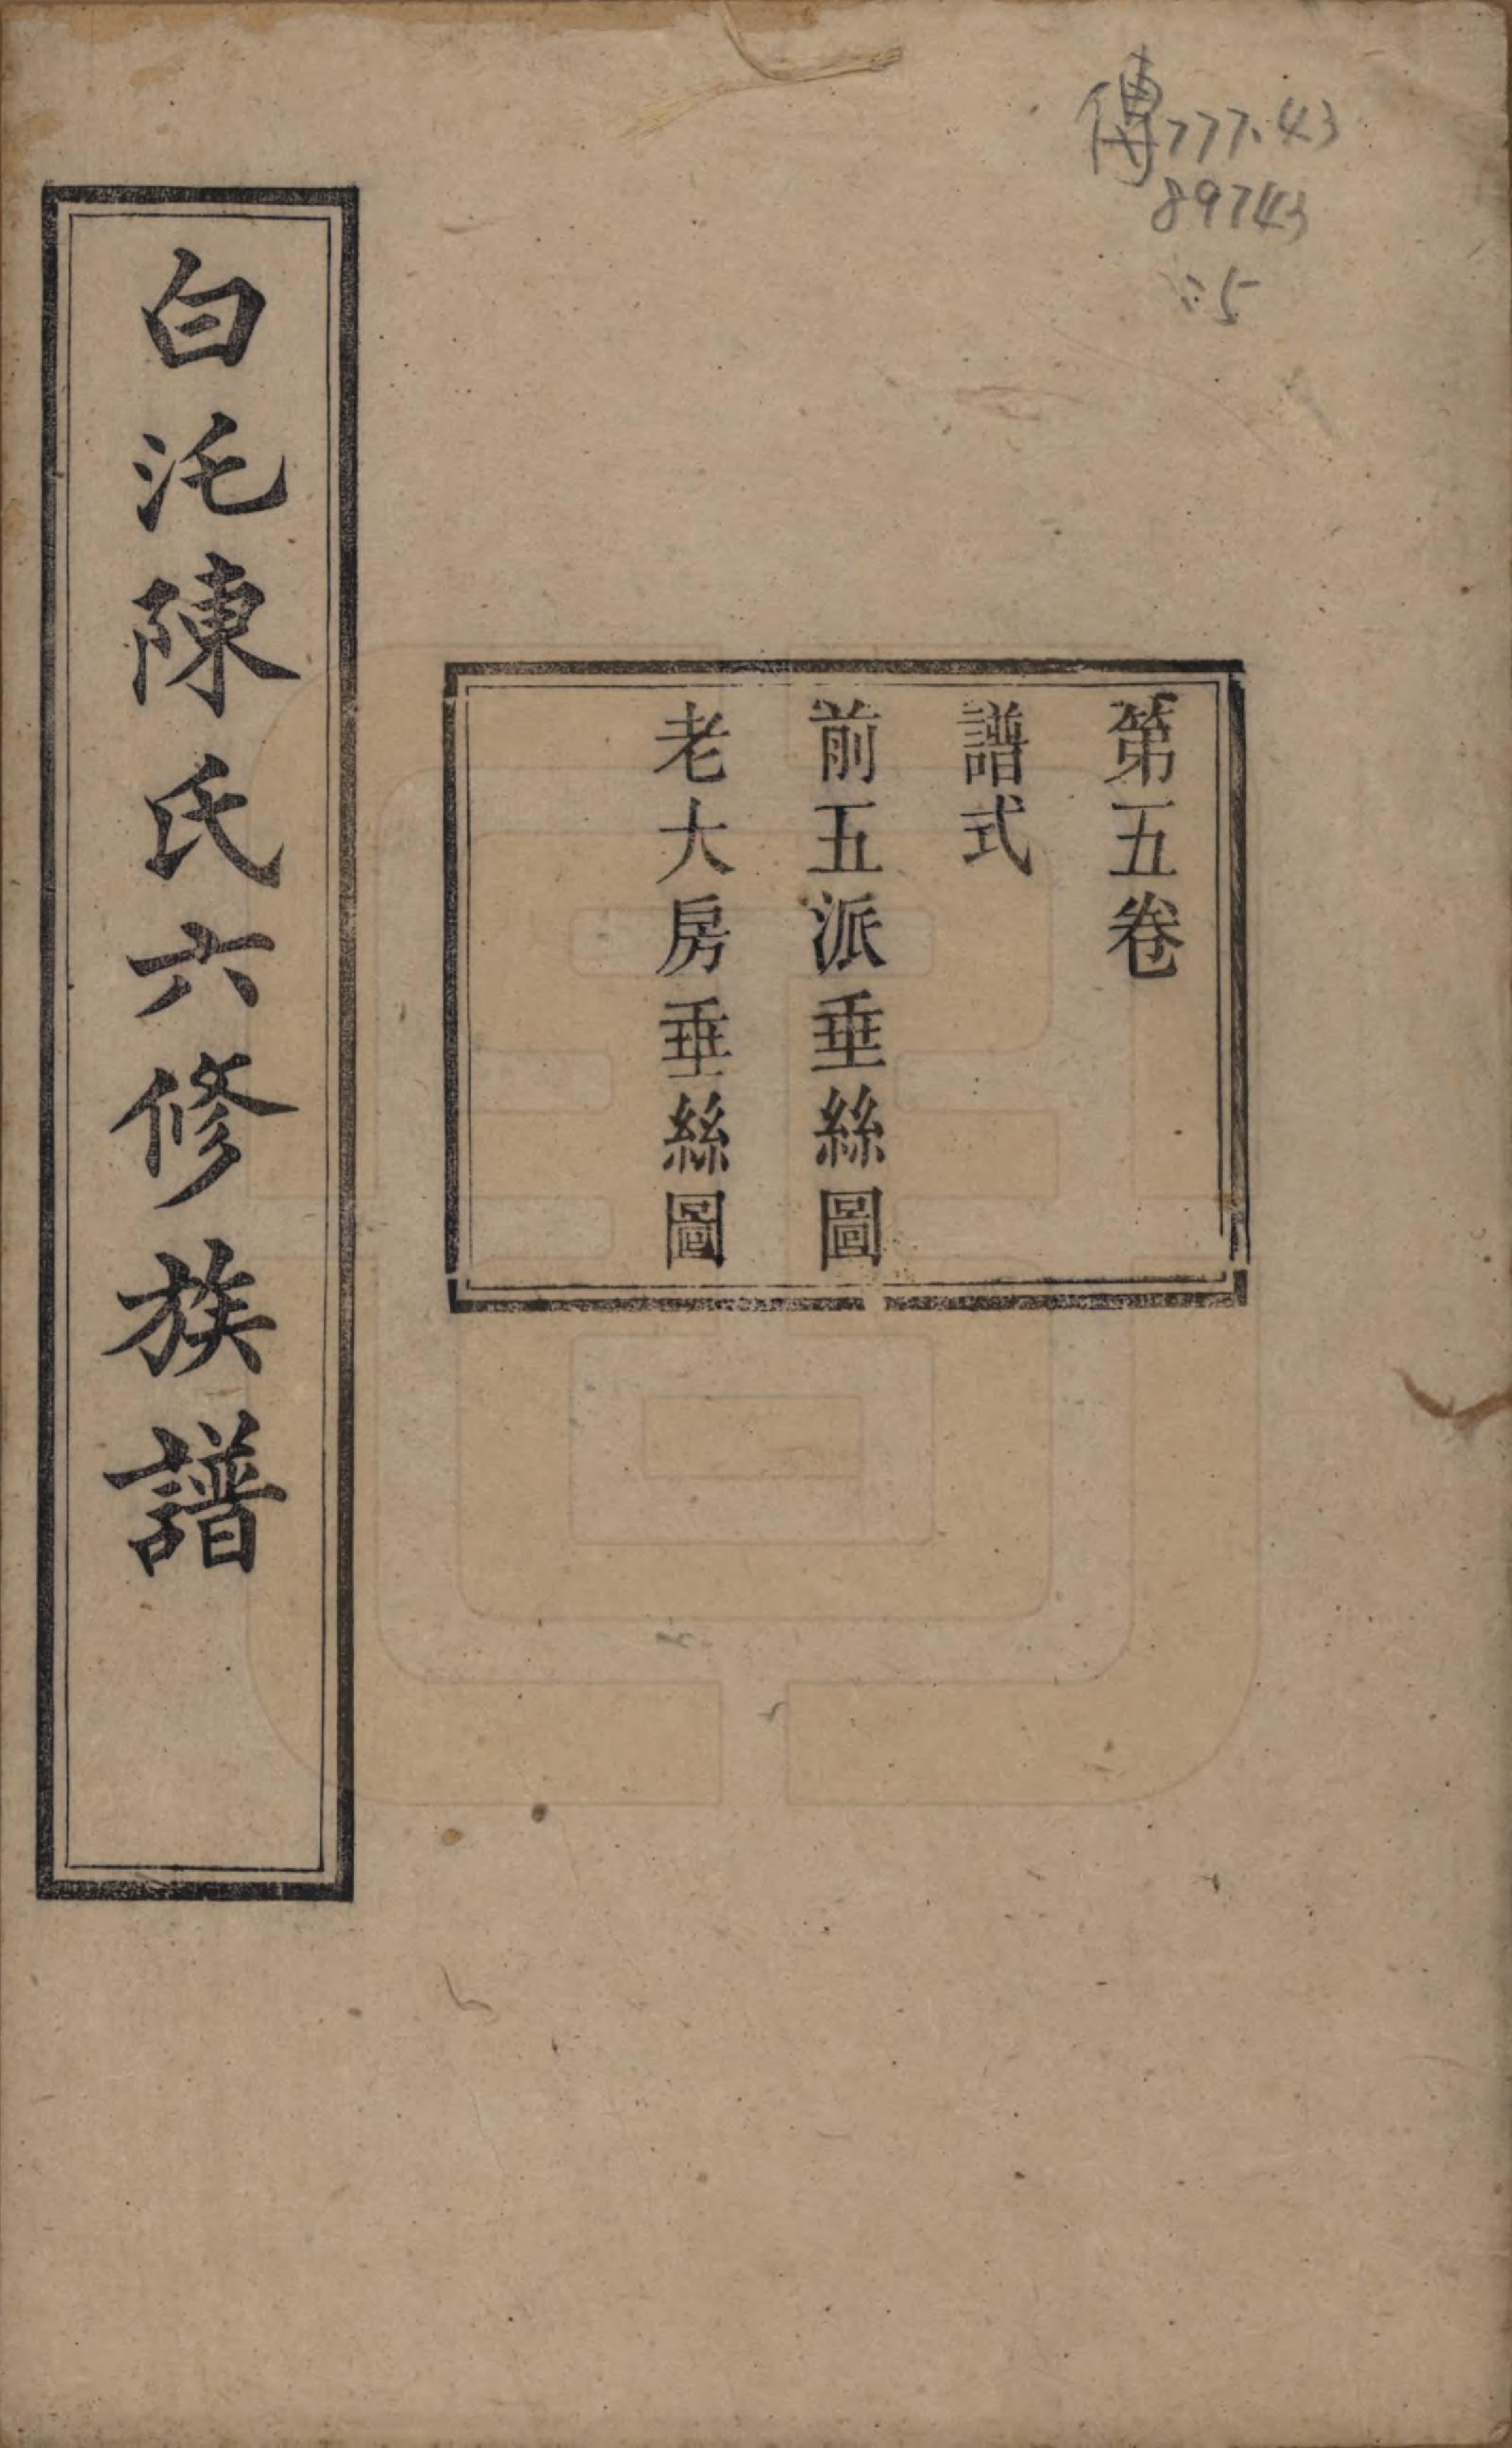 傳777.43
89743
:5
第五卷
譜式
前五派垂絲圖
老大房垂絲圖
白沌陳氏六修族譜